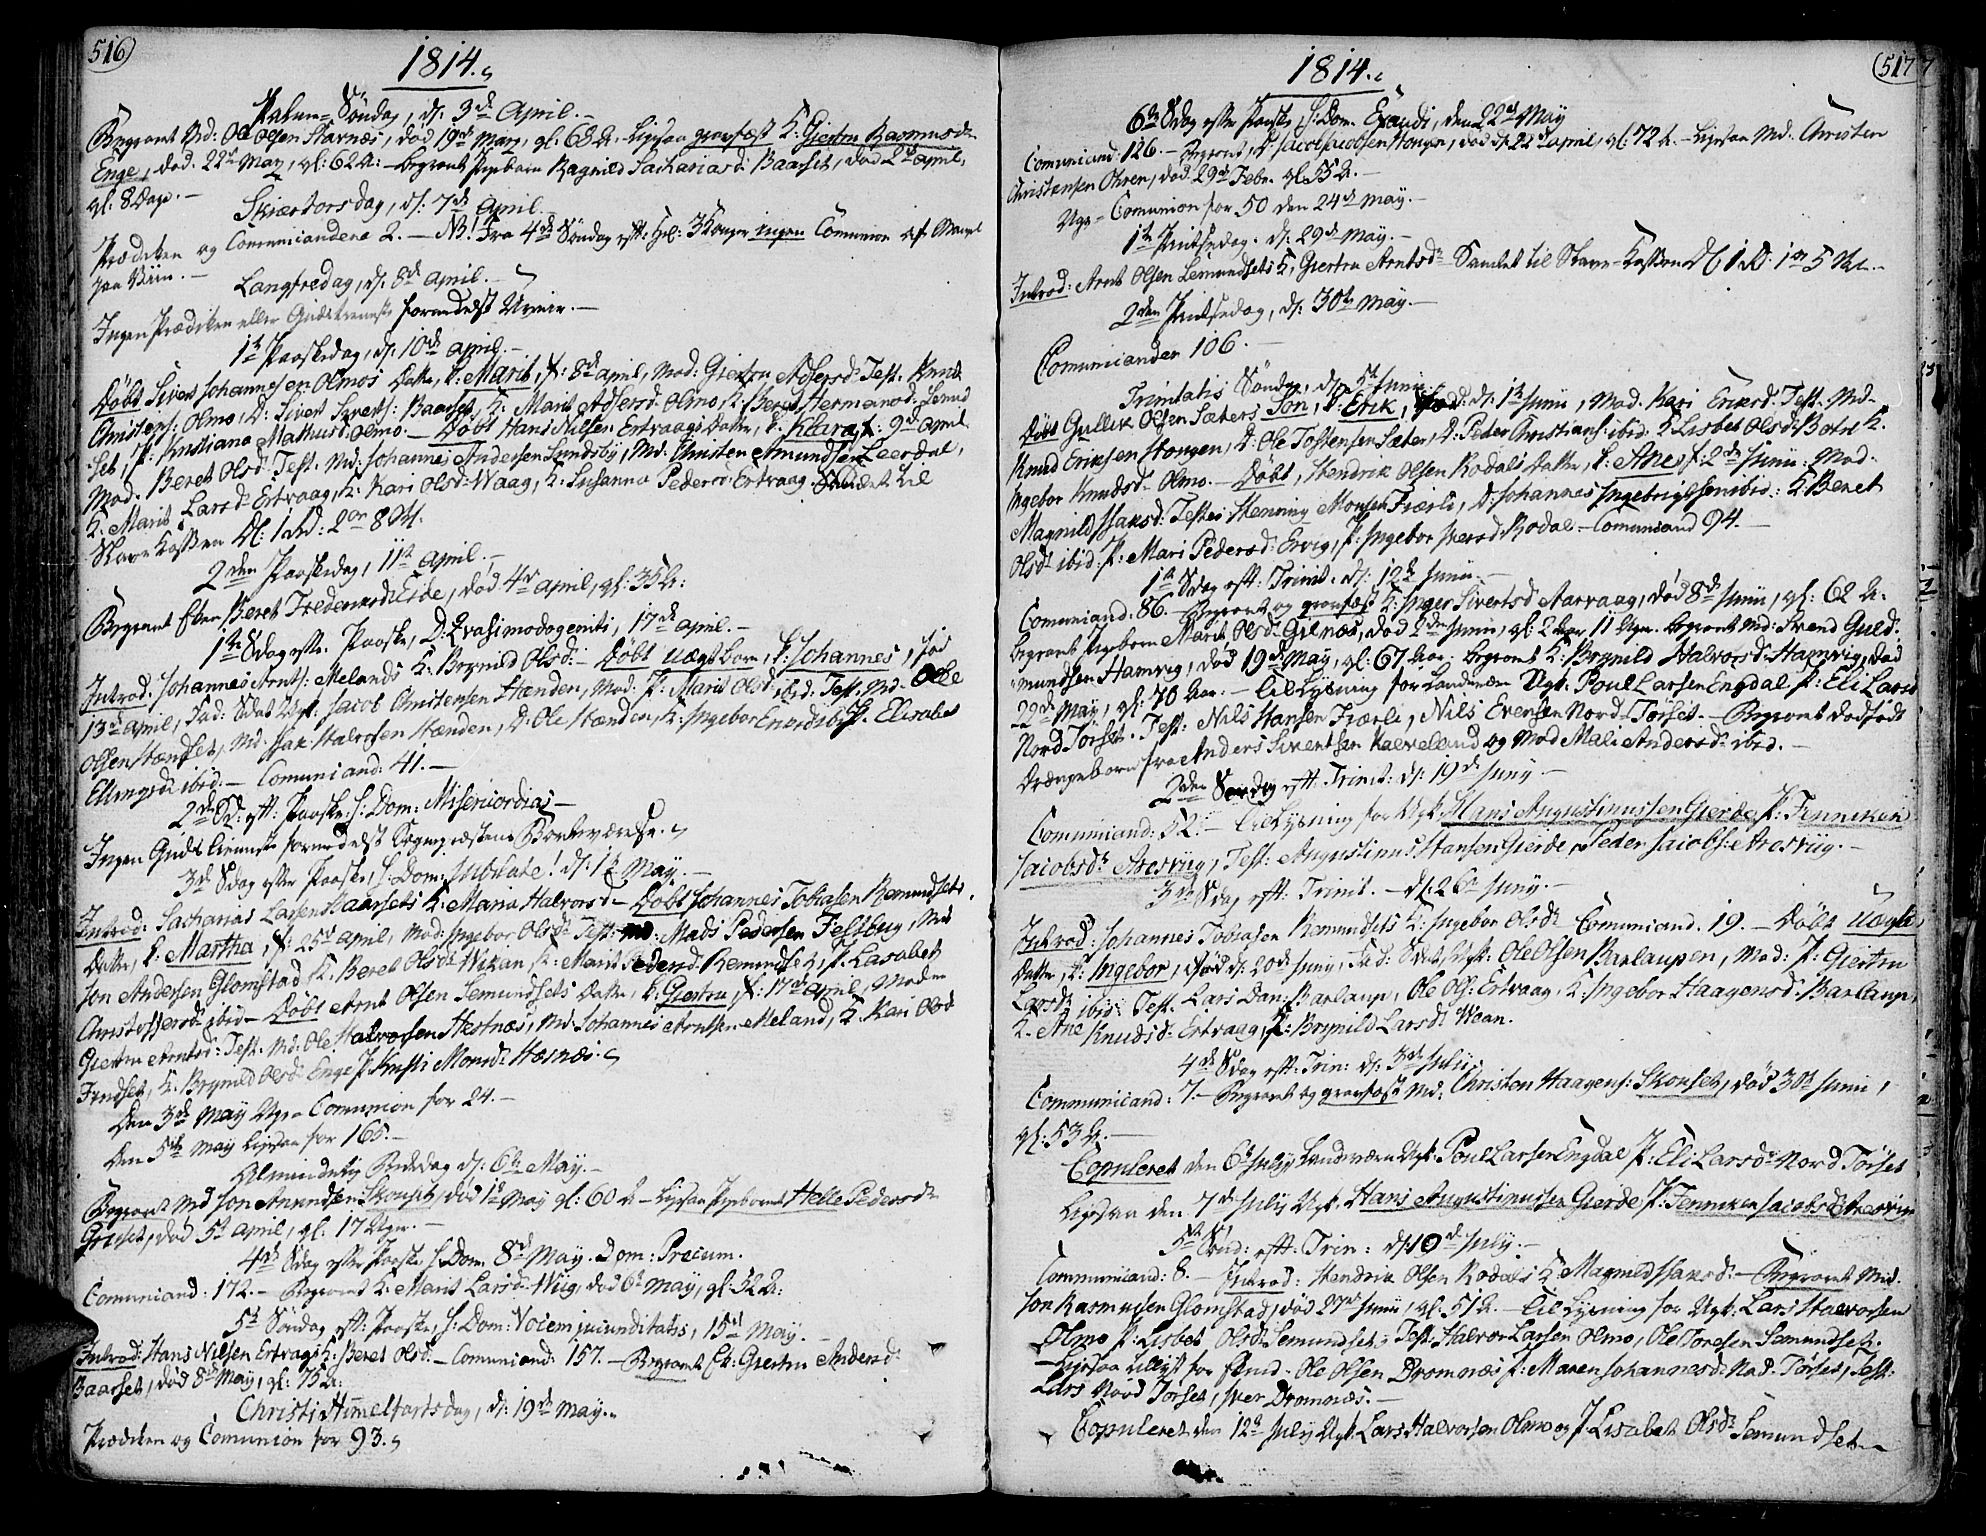 516
1814.
Palme-Søndag, d: 3de April.
Begravet Md: Ole Olsen Starnæs, død 19de May, gl: 68 A. Ligesaa gravfæst K: Giertru Rasmusd:
Enge, død 22de May, gl: 62 A: – Begravet Pigebarn Ragnild Sachariasd: Baarset, død 2de April,
gl: 8 Dage. –
Skiærtorsdag, d: 7de April. –
Prædiken og Comunicandere 2. – NB! Fra 4de Søndag eft: Hel: 3 Konger ingen Comunion af Mangel
paa Viin. –
Langfredag, d: 8de April. –
Ingen Prædiken eller Gudstieneste formedelst Uveir. –
1te Paaskedag, d: 10de April. –
Døbt Siver Johannesen Olmos Datter, k: Marit, f: 8de April, Mod: Giertru Adsersd: Test. Knud
Christens: Olmo, D: Sivert Siverts: Baarset, K: Marit Adsersd: Olmo, K: Beret Hermansd: Semud
Set, P: Kristiana Mathusd: Olmo. – Døbt Hans Nilsen Ertvaags Datter, k: Klara, f: 9d April
Mod. Beret Olsd: Test. Md: Johannes Andersen Sundsby, Md: Christen Amundsen Leerdal,
K: Marit Larsd: Ertvaag, K: Kari Olsd: Waag, K: Susanna Pedersd: Ertvaag. Samlet til
Slave Kassen Dl: 1 Rd: 2 ort 8 Sk.
2den Paaskedag, 11te April, –
Begravet Enken Beret Fredriksd: Eide, død 4de April, gl: 35 A:
1te Sdag efter Paaske, D: Qvasimodogeniti, 17de April. –
Introd. Johannes Arnts: Melands K: Brynild Olsd: – Døbt Uægt barn, k: Johannes, fød
13de April, Fad: Sdat Ugk: Jacob Christensen Stænden, Mod: P: Marit Olsd: ibid. Test. Md. Olle
Olsen Stændset, Md: Isak Halvorsen Stænden, D: Ole Stænden, K: Ingebor Enersd: ibid: P. Elisabet
Ellingsd: ibid. – Comuniand: 41. –
2den Sd: eft: Paaske, S: Dom: Misericordias –
Ingen Guds tieneste formedelst Sognepræstens Bortværelse.
3de Sdag efter Paaske, S: Dom: Jubilate! d: 1te May. –
Introd: Sacharias Larsen Baarsets K: Maria Halvorsd: – Døbt Johannes Tobiasen Remundsets
Datter, k: Martha, f: 25de April, Mod: Ingebor Olsd: Test: Md: Mads Pedersen Felsbug, Md:
Jon Andersen Glomstad, K: Beret Olsd: Wikan, K: Marit Pedersd: Remundset, P: Lasabet
Christoffersd: ibid – Døbt Arnt Olsen Semundsets Datter, k: Giertru, f: 17de April, Mod:
Giertru Arntsd: Test. Md: Ole Halvorsen Hestnæs, Md: Johannes Arntsen Meland, K. Kari Olsd:
Fredset, K. Brynild Olsd: Enge P: Kristi Monsd: Hæsnæs.
Den 3de May Uge Comunion for 24. –
Den 5te May Ligesaa for 165. –
Almindelig Bededag d: 6te May. –
Begravet Md Jon Amundsen Skouset, død 1te May gl: 60 A – Ligesaa Pigebarnet Helle Pedersd:
Griset, død 5t April, gl. 17 Uger. –
4de Sdag efter Paaske, S: Dom. 8de May. Dom: Precum.
Comuniand: 172. – Begravet K: Marit Larsd: Wiig, død 6te May, gl. 32 A:
5te Søndag eft: Paaske, S: Dom: Vocem jucunditatis, 15de May. –
Introd: Hans Nilsen Ertvags K: Beret Olsd. – Comuniand: 157. – Begravet Ek: Giertru Andersd:
Baarset, død 8de May, gl: 75 A:
Christi Himmelfartsdag, d: 19de May.
Prædiken og Comunion for 93.
517
1814.
6te Sdag efter Paaske, S: Dom. Exaudi, den 22de May
Comuniand: 126. – Begravet, D: Jacob Jacobsen Stougen, død d: 22de April, gl: 72 A. – Ligesaa Md. Christen
Christensen Ohren, død 29de Febr. gl. 55 A. –
Uge-Comunion for 50 den 24de May. –
1te Pintsedag. d: 29de May. –
Introd: Arnt Olsen Semundsets K, Giertru Arntsd: Samlet til Slave-Kassen Dl: 1 Rd: 1 ort 5 Sk. –
2den Pintsedag, d: 30te May. –
Comuniander 106. –
Trinitatis Søndag, d: 5te Junii. –
Døbt Gullik Olsen Sæters Søn, k: Erik, fød: d: 1te Junii, Mod. Kari Eriksd: Test. Md.
Knud Eriksen Stougen, D: Ole Tostensen Sæter, D: Peder Christians: ibid. K Lisbet Olsd: Botn K.
Ingebor Knudsd: Olmo. – Døbt, Hendrik Olsen Rodals Datter, k: Ane, f: 2de Junii. Mod.
Magnild Isaksd: Testes Henning Monsen Fiærli, D: Johannes Ingebrigtsen ibid: K: Beret
Olsd: ibid: P: Mari Pedersd: Ervig, P: Ingebor Iversd: Rodal – Comuniand 94. –
1te Sdag eft: Trinit. d: 12te Junii. –
Comuniand: 86. – Begravet og gravfæst K: Inger Sivertsd: Aarvaag, død 8de Junii, gl: 62 A.
Begravet Pigebarn Marit Olsd: Gilnæs, død 2den Junii, gl. 2 Aar 11 Uger. Begravet Md: Svend Guld:
mundsen Hamvig, død 19de May, gl: 67 Aar. Begravet K: Brynild Halvorsd: Hamvig, død
22de May, gl: 70 Aar. – Til Lysning for Landværn Ugk. Poul Larsen Engdal, P: Eli Larsd:
Nord Torset. Test: Nils Hansen Fiærli, Nils Evensen Nord-Torset. – Begravet dødfødt
Drængebarn fra Anders Sivertsen Kalveland og Mod Mali Andersd: ibid. –
2den Søndag eft: Trinit: d: 19de Juny –
Comuniand: 52. – Til Lysning for Ugk: Hans Augustinussen Gierde, P: Jenneken
Jacobsd: Aresviig, Test: Augustinus Hansen Gierde, Peder Jacobs: Aresviig. –
3die Sdag eft: Trinit. – d: 26te Juny. –
Introd: Johannes Tobiasen Remundsets K: Ingebor Olsd: Comuniand. 19. – Døbt Uægte
Datter, k: Ingebor, fød d: 20de Juny, Fad: Sdat, Ugk: Ole Olsen Barlaupen, Mod: P: Giertru
Larsd: ibid: Test. Lars Dan: Barlaup, Ole Ols: Ertvaag, K: Ingebor Haagensd: Barlaup,
K. Ane Knudsd: Ertvaag, P: Brynild Larsd: Waan.
4de Sdag eft: Trin: d: 3de July.
Communicand: 7. – Begravet og gravfæst Md: Christen Haagens: Skouset, død 30t Junii,
gl: 53 A. –
Copuleret den 6te July Landværn Ugk: Poul Larsen Engdal P: Eli Larsd: Nord Torset
Ligesaa den 7de July Ugk. Hans Augustinussen Gierde, P: Jenneken Jacobsd: Aresviig
5te Sønd: eft: Trin: d: 10de July. –
Communiand: 8. – Introd: Hendrik Olsen Rodals K: Magnild Isaksd: – Begravet Md.
Jon Rasmusen Glomstad, død 27de Junii, gl. 51 A. – Til Lysning for Ugk: Lars Halvorsen
Olmo P: Lisbet Olsd: Semundset, Test: Halvor Larsen Olmo, Ole Toresen Semundset.
– Ligesaa tillyst for Enkd: Ole Olsen Dromnæs P: Maren Johannesd: Nod. Torset, Test:
Lars Nord Torset, Iver Dromnæs. –
Copuleret den 12te July Ugk. Lars Halvorsen Olmo og P. Lisabet Olsd: Semundset –